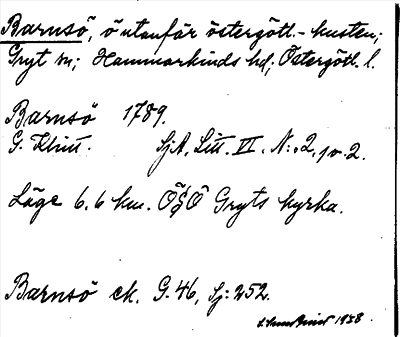 Barnsö, ö utanför östergötl.-kusten;
Gryt sn; Hammarkinds hd; Östergötl. l.
Barnsö 1789.
G. Klint. SjA, Litt. VI. N:o 2, 1 o. 2.
Läge 6.6 km. ÖSÖ Gryts kyrka.
Barnsö ek. G. 46, Sj: 252.
1938